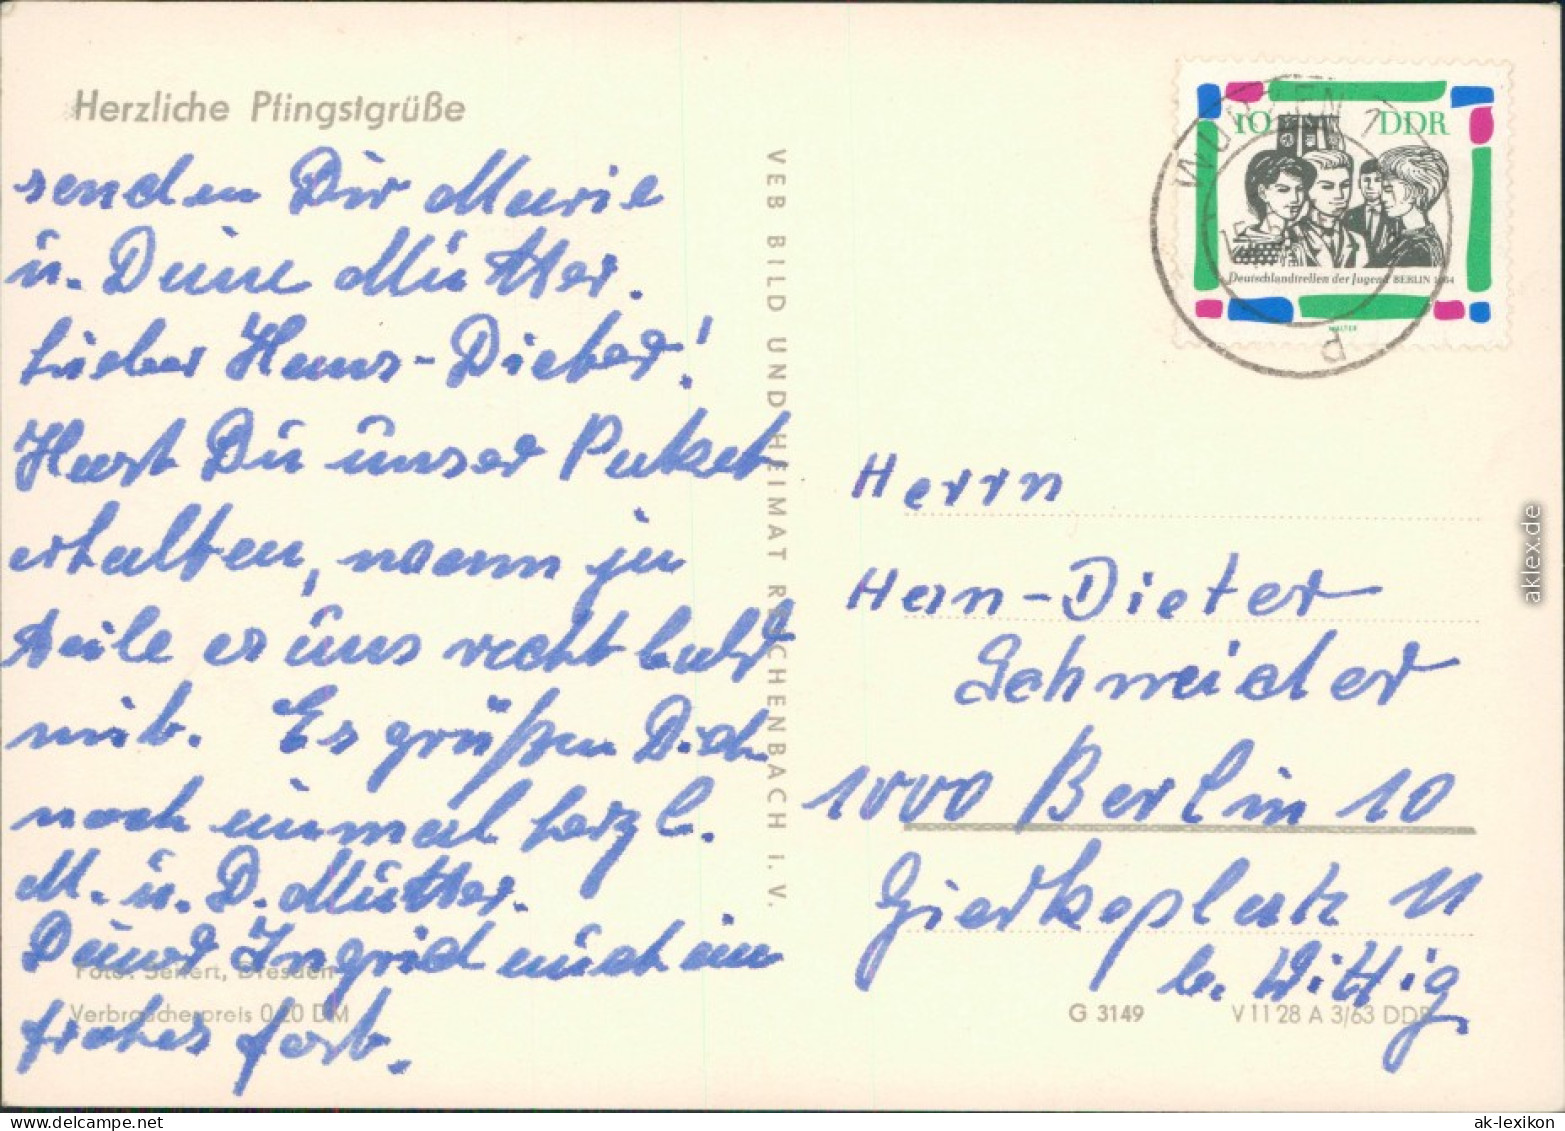 Herzliche Pfingstgrüße
senden Dir Marie
u. Deine Mutter.
Lieber Hans-Dieter!
Hast Du unser Paket
erhalten, wenn ja
teile es uns recht bald
mit. Es grüßen Dich
noch einmal herzl.
M. u. D. Mutter.
Deiner Ingrid auch ein
frohes fest.
Foto: Seifert, Dresden
Verbraucherpreis 0,20 DM
VEB BILD UND HEIMAT REICHENBACH I. V.
WURZEN 1
10 DDR
Deutschlandtreffen der Jugend BERLIN 1964
WALTER
Herrn
Han-Dieter
Schneider
1000 Berlin 10
Gierkeplatz 11
b. Wittig
G 3149 V 11 28 A 3/63 DDR
aklex.de
ak-lexikon